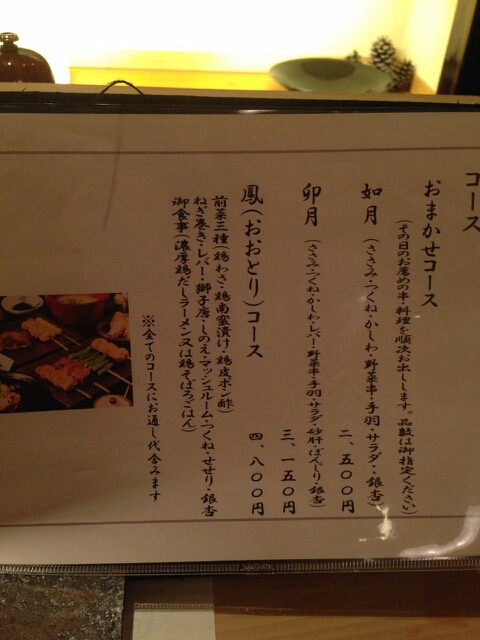 コース
おまかせコース
(その日のお薦めの串・料理を順次お出しします。品数は御指定ください)
如月
(ささみ・つくね・かしわ・野菜串・手羽・サラダ・・銀杏)
二、五〇〇円
卯月
(ささみ・つくね・かしわ・レバー・野菜串・手羽・サラダ・砂肝・ぼんじり・銀杏)
三、一五〇円
鳳(おおとり)コース
四、八〇〇円
前菜三種(鶏わさ・鶏南蛮漬け・鶏皮ポン酢)
ねぎ巻き・レバー・獅子唐・しのえ・マッシュルーム・つくね・せせり・銀杏
御食事(濃厚鶏だしラーメン又は鶏そぼろごはん)
※全てのコースにお通し代含みます